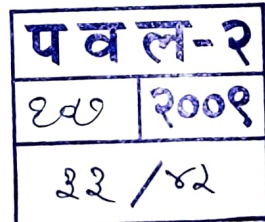 पवल-२
२००९
३३ /४२